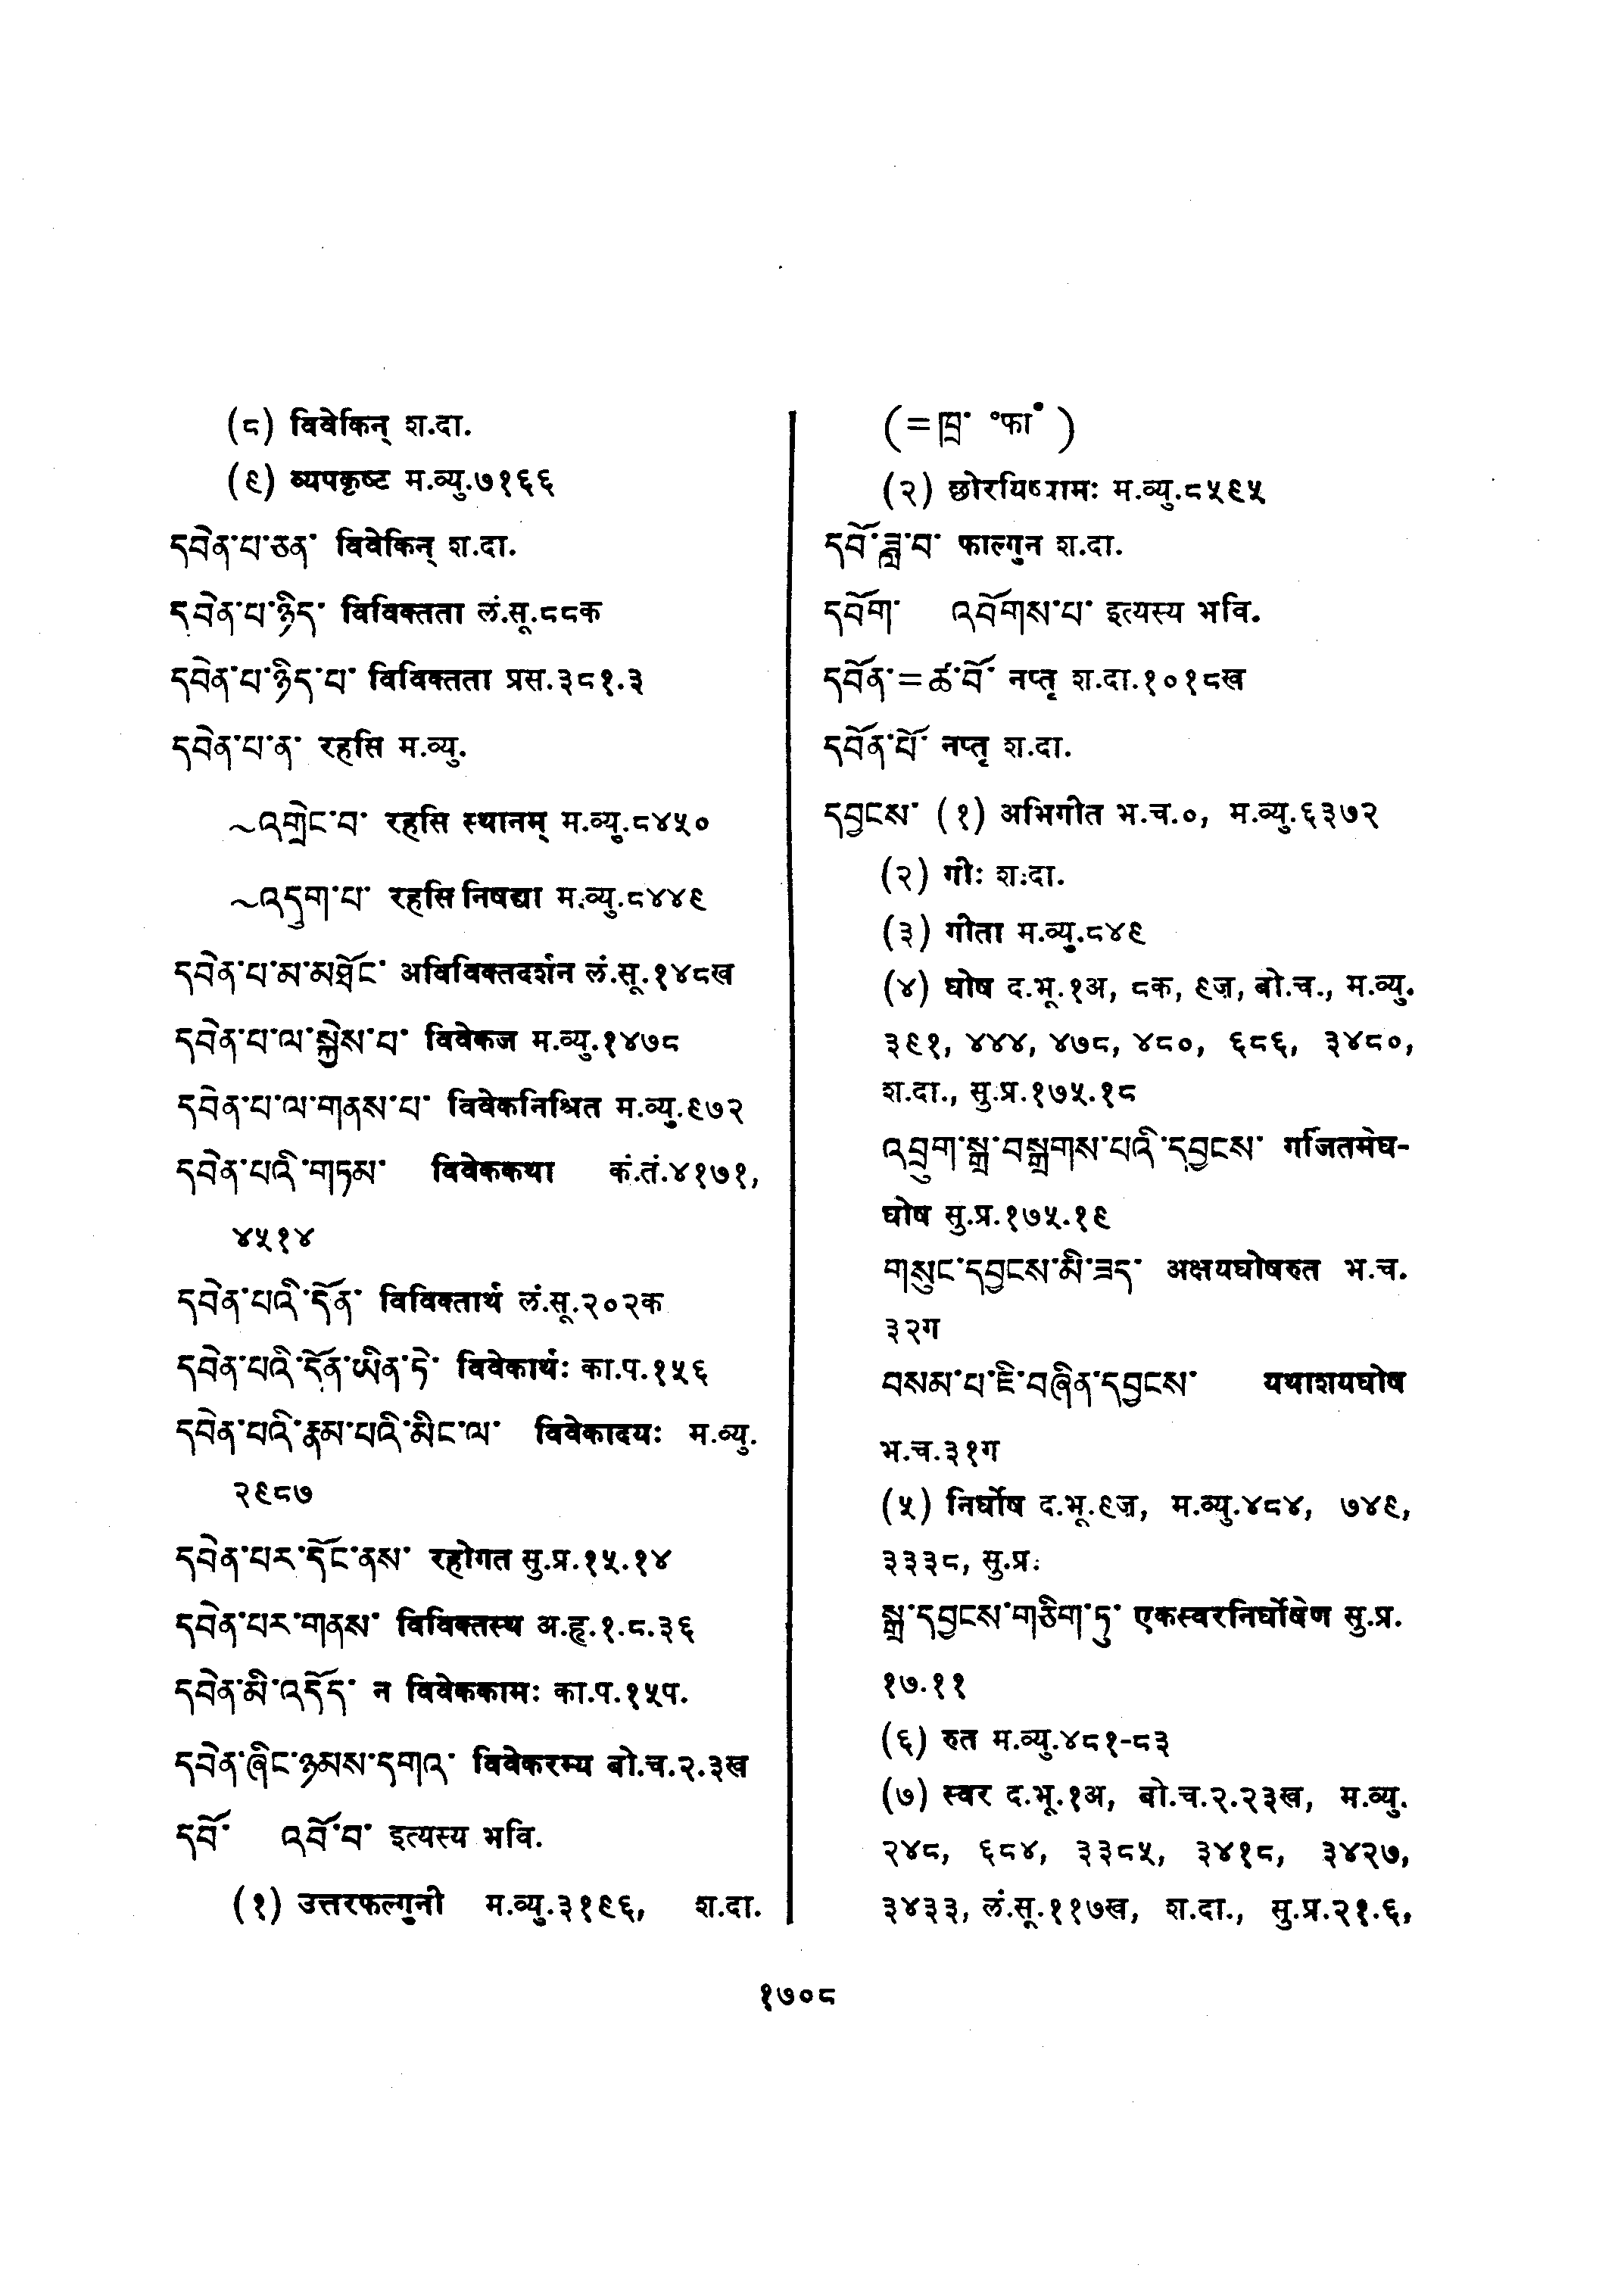 (८) विवेकिन् श.दा.
(९) व्यपकृष्ट म.व्यु.७१६६
དབེན་པ་ཅན་ विवेकिन् श.दा.
དབེན་པ་ཉིད་ विविक्तता लं.सू.८८क
དབེན་པ་ཉིད་པ་ विविक्तता प्रस.३८१.३
དབེན་པ་ན་ रहसि म.व्यु.
~འགྲེང་བ་ रहसि स्थानम् म.व्यु.८४५०
~འདུག་པ་ रहसि निषद्या म.व्यु.८४४९
དབེན་པ་མ་མཐོང་ अविविक्तदर्शन लं.सू.१४८ख
དབེན་པ་ལ་སྐྱེས་པ་ विवेकज म.व्यु.१४७८
དབེན་པ་ལ་གནས་པ་ विवेकनिश्रित म.व्यु.९७२
དབེན་པའི་གཏམ་ विवेककथा कं.तं.४१७१,
४५१४
དབེན་པའི་དོན་ विविक्तार्थ लं.सू.२०२क
དབེན་པའི་དོན་ཡིན་ཏེ་ विवेकार्थः का.प.१५६
དབེན་པའི་རྣམ་པའི་མིང་ལ་ विवेकादयः म.व्यु.
२९८७
དབེན་པར་དོང་ནས་ रहोगत सु.प्र.१५.१४
དབེན་པར་གནས་ विविक्तस्थ अ.हृ.१.८.३६
དབེན་མི་འདོད་ न विवेककामः का.प.१५प.
དབེན་ཞིང་ཉམས་དགའ་ विवेकरम्य बो.च.२.३ख
དབོ་ འབོ་བ་ इत्यस्य भवि.
(१) उत्तरफल्गुनी म.व्यु.३१९६, श.दा.
(=ཁྲ་ °फा°)
(२) म.व्यु.८५९५
དབོ་ཟླ་བ་ फाल्गुन श.दा.
དབོག་ འབོགས་པ་ इत्यस्य भवि.
དབོན་=ཚ་བོ་ नप्तृ श.दा.१०१८ख
དབོན་པོ་ नप्तृ श.दा.
དབྱངས་ (१) अभिगीत भ.च.०, म.व्यु.६३७२
(२) गीः श.दा.
(३) गीता म.व्यु.८४९
(४) घोष द.भू.१अ, ८क, ९ज़, बो.च., म.व्यु.
३९१, ४४४, ४७८, ४८०, ६८६, ३४८०,
श.दा., सु.प्र.१७५.१८
འབྲུག་སྒྲ་བསྒྲགས་པའི་དབྱངས་ गर्जितमेघ-
घोष सु.प्र.१७५.१९
གསུང་དབྱངས་མི་ཟད་ अक्षयघोषरुत भ.च.
३२ग
བསམ་པ་ཇི་བཞིན་དབྱངས་ यथाशयघोष
भ.च.३१ग
(५) निर्घोष द.भू.९ज़, म.व्यु.४८४, ७४९,
३३३८, सु.प्र.
སྒྲ་དབྱངས་གཅིག་ཏུ་ एकस्वरनिर्घोषेण सु.प्र.
१७.११
(६) रुत म.व्यु.४८१-८३
(७) स्वर द.भू.१अ, बो.च.२.२३ख, म.व्यु.
२४८, ६८४, ३३८५, ३४१८, ३४२७,
३४३३, लं.सू.११७ख, श.दा., सु.प्र.२१.६,
१७०८